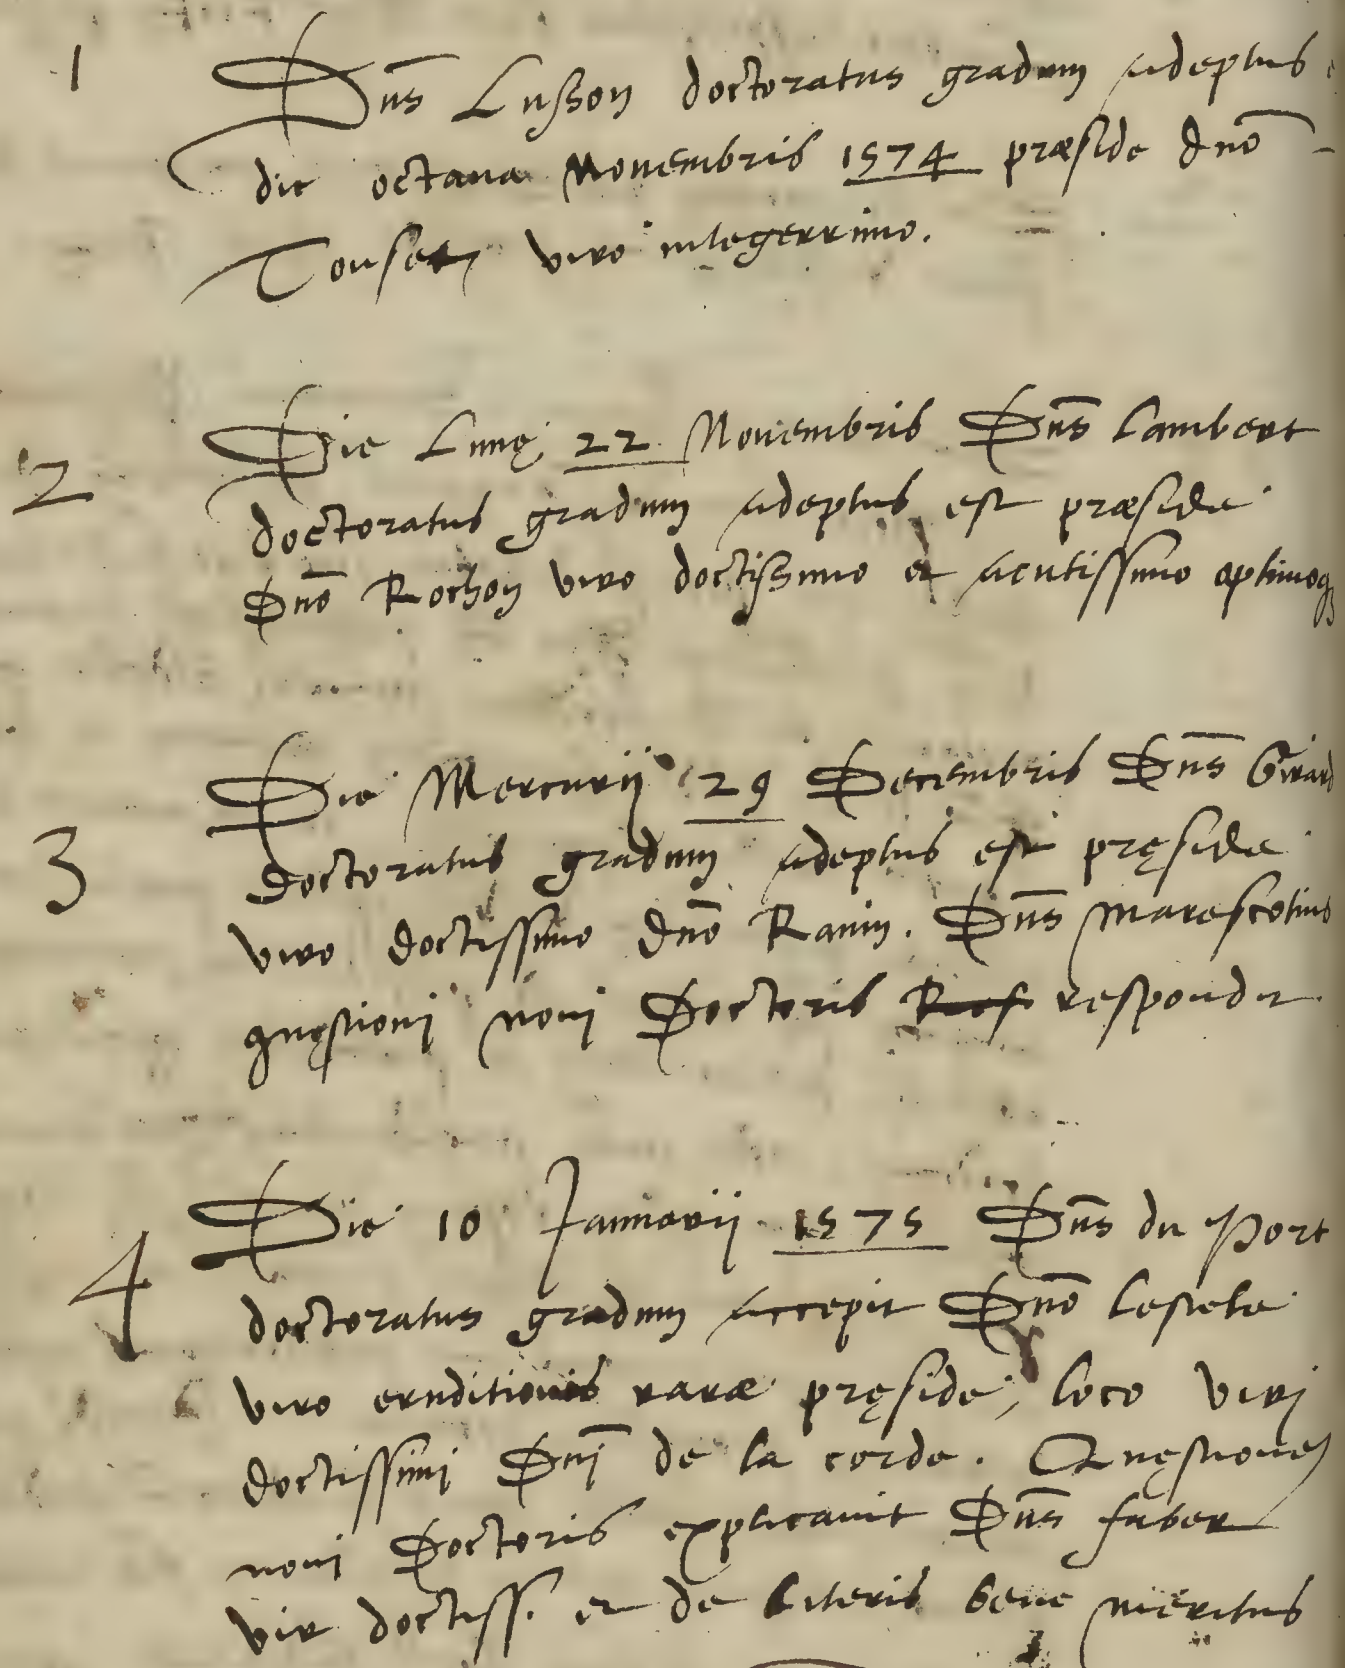 1 Dn̄s Lusson doctoratus gradum adeptus
die octaua Nouembris 1574 præside dnō
Touset viro integerrimo.
2 Die Lunę 22 Nouembris Dn̄s Lambert
doctoratus gradum adeptus est præside
Dnō Rochon viro doctissimo et acutissimo optimoq3
3 Die Mercurij 29 Decembris Dn̄s Girard
doctoratus gradum adeptus est pręside
viro doctissimo dnō Rauin. Dn̄s Marescotius
quęstioni noui Doctoris respondit
4 Die 10 Januarij 1575 Dn̄s du Port
doctoratus gradum accepit Dnō Lestele
viro eruditionis raræ pręside, loco viri
doctissimi Dnī de la corde. Quęstionem
noui Doctoris explicauit Dn̄s faber
vir doctiss. et de literis bene meritus